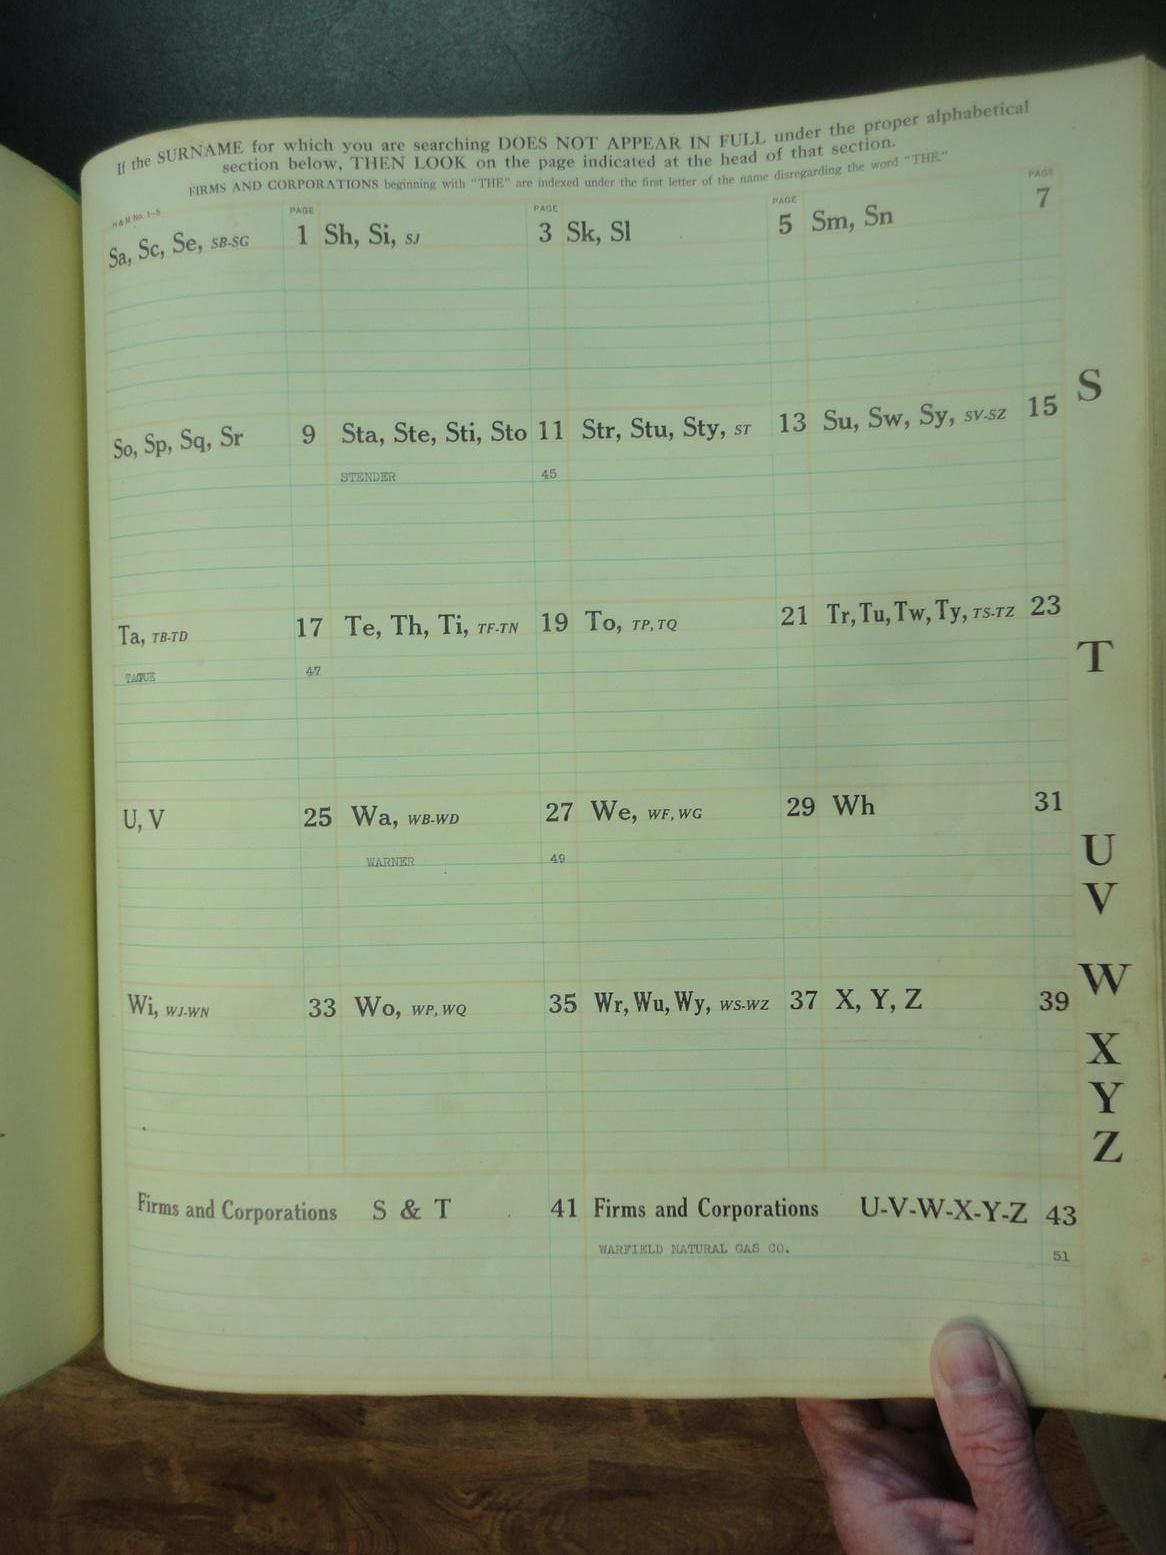 If the SURNAME for which you are searching DOES NOT APPEAR IN FULL under the proper alphabetical
section below, THEN LOOK on the page indicated at the head of that section.
FIRMS AND CORPORATIONS beginning with "THE" are indexed under the first letter of the name disregarding the word "THE."
H&M No. 1-S PAGE PAGE PAGE PAGE
Sa, Sc, Se, SB-SG 1 Sh, Si, SJ 3 Sk, Sl 5 Sm, Sn 7
S
So, Sp, Sq, Sr 9 Sta, Ste, Sti, Sto 11 Str, Stu, Sty, ST 13 Su, Sw, Sy, SV-SZ 15
STENDER 45
Ta, TB-TD 17 Te, Th, Ti, TF-TN 19 To, TP, TQ 21 Tr, Tu, Tw, Ty, TS-TZ 23
T
TAGUE 47
U, V 25 Wa, WB-WD 27 We, WF, WG 29 Wh 31
U
WARNER 49
V
W
Wi, WJ-WN 33 Wo, WP, WQ 35 Wr, Wu, Wy, WS-WZ 37 X, Y, Z 39
X
Y
Z
Firms and Corporations S & T 41 Firms and Corporations U-V-W-X-Y-Z 43
WARFIELD NATURAL GAS CO. 51